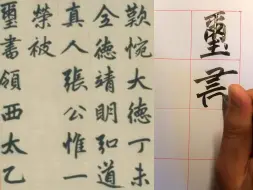 歎惋大德丁未
全德靖明弘道
真人張公惟一
榮被
璽書領西太乙
璽言